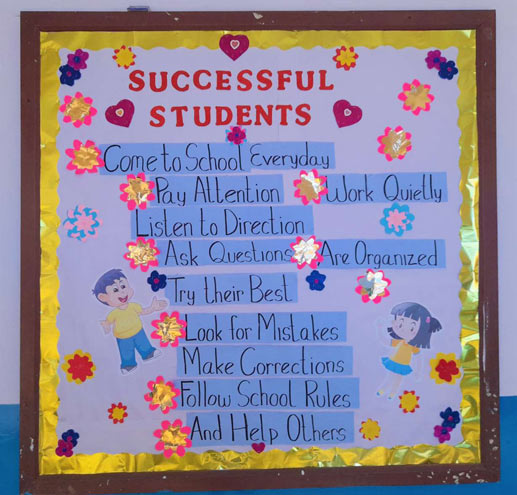 SUCCESSFUL
STUDENTS
Come to School Everyday
Pay Attention Work Quielly
Listen to Direction
Ask Questions Are Organized
Try their Best
Look for Mistakes
Make Corrections
Follow School Rules
And Help Others